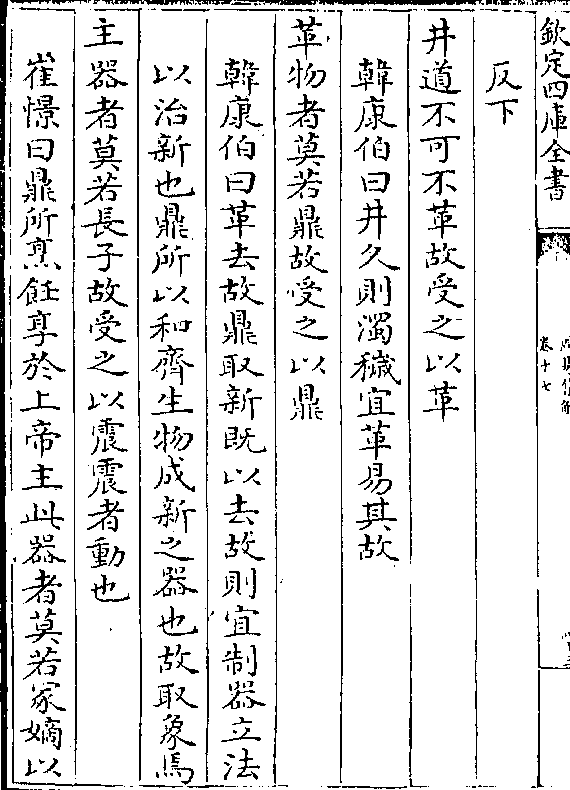 欽定四庫全書
卷十七
反下
井道不可不革故受之以革
韓康伯曰井久則濁穢宜革易其故
革物者莫若鼎故受之以鼎
韓康伯曰革去故鼎取新既以去故則宜制器立法
以治新也鼎所以和齊生物成新之器也故取象焉
主器者莫若長子故受之以震震者動也
崔憬曰鼎所烹飪享於上帝主此器者莫若冢嫡以